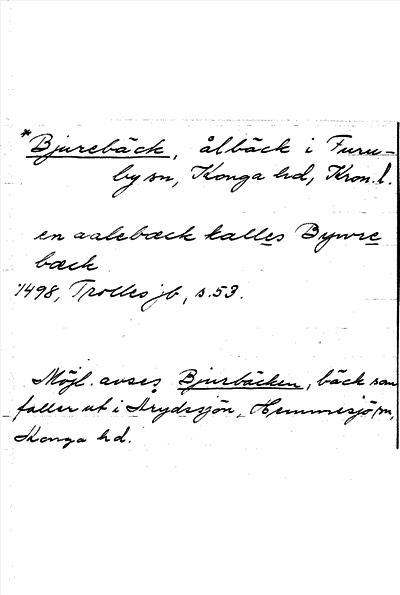 *Bjurebäck, ålbäck i Furu-
by sn, Konga hd, Kron. l.
en aalebæck kalles Bywre
bæck
1498, Trolles jb, s. 53.
Möjl. avses Bjursbäcken, bäck som
faller ut i Årydssjön, Hemmesjö sn,
Konga hd.